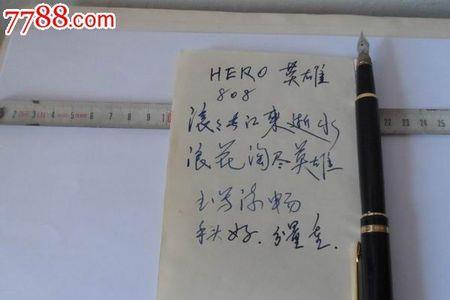 7788.com
HERO 英雄
808
滚々长江东逝水
浪花淘尽英雄
书写流畅
手头好.分量重.
1 2 3 4 5 6 7 8 9 10
22 23 24 25